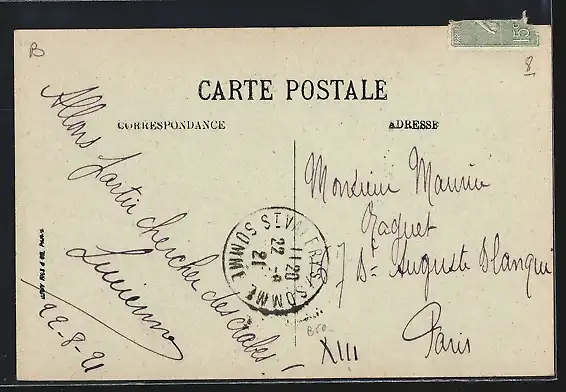 B
15c
8
CARTE POSTALE
CORRESPONDANCE
ADRESSE
Allons
chercher des crabes !
Lucienne
22-8-21
LEVY FILS & CIE, PARIS
ST VALERY S. SOMME
SOMME
11 20
22 -8
21
Monsieur Maurice
Raquet
7 Bd Auguste Blanqui
Paris
XIII